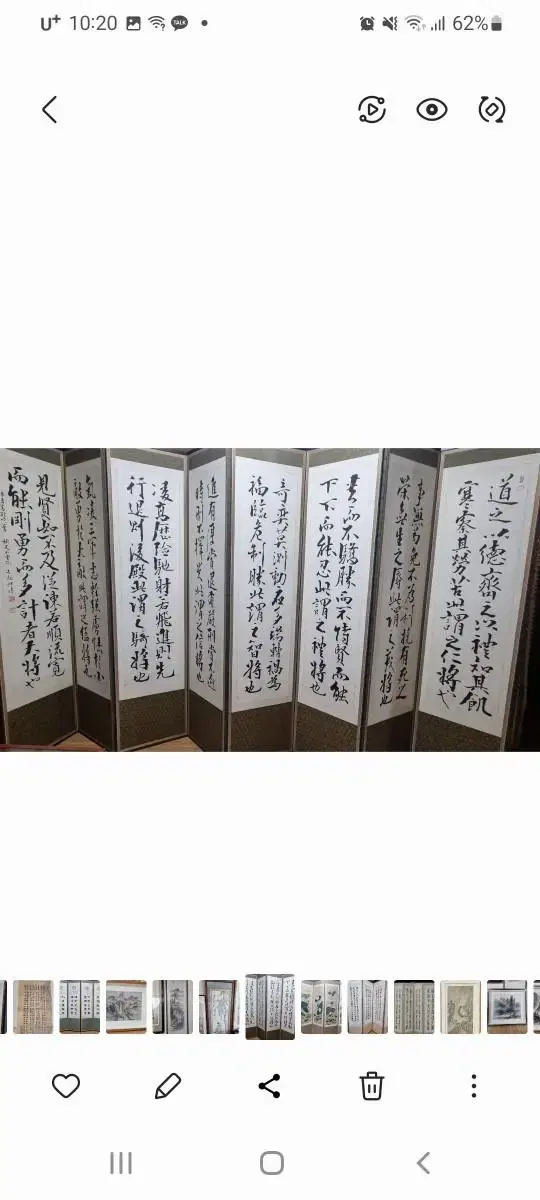 U+ 10:20 TALK 62%
道之以德齊之以禮知其飢
寒察其勞苦此謂之仁將也
事無苟免不為利撓有死之
榮無生之辱此謂之義將也
貴而不驕勝而不恃賢而能
下下而能忍此謂之禮將也
奇變莫測動応多端轉禍為
福臨危制勝此謂之智將也
進有厚賞退有嚴刑賞不逾
時刑不擇貴此謂之信將也
凌高歷險馳射若飛進則先
行退則後殿此謂之騎將也
氣凌三軍志輕強虜怯於小
敵勇於大敵此謂之猛將也
見賢如不及從諫若順流寬
而能剛勇而多計者大將也